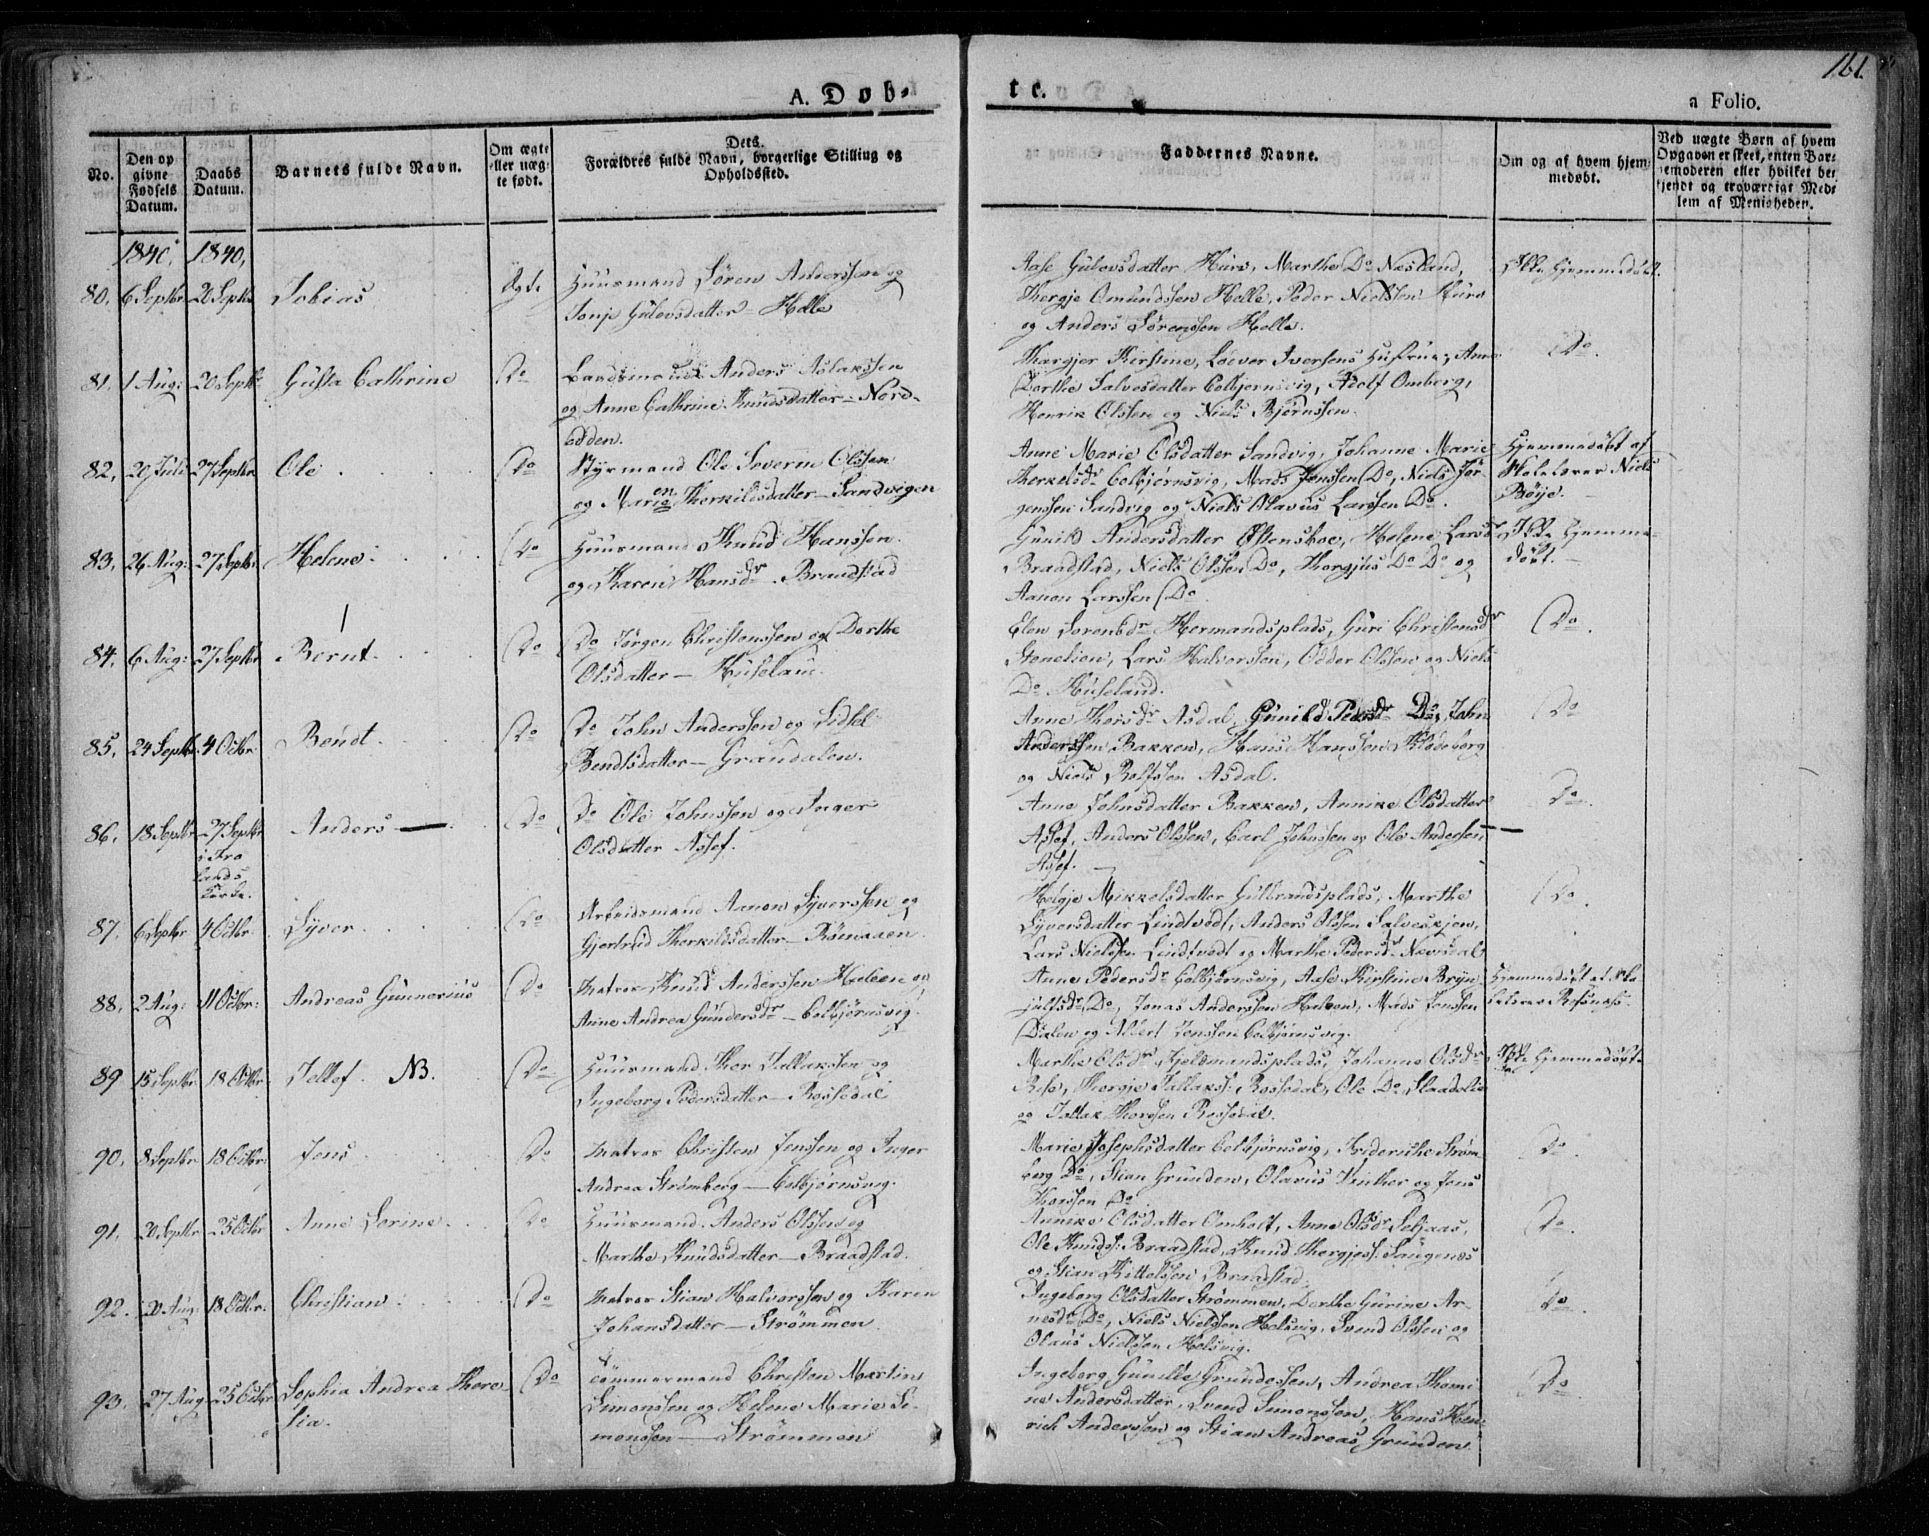 161.
A. Døb-
te.
a Folio.
No.
Den op
givne
Fødsels
Datum.
Daabs
Datum.
Barnets fulde Navn.
Om ægte
eller uæg-
te født.
Dets
Forældres fulde Navn, borgerlige Stilling og
Opholdssted.
Faddernes Navne.
Om og af hvem hjem-
medøbt.
Ved uægte Børn af hvem
Opgaven er skeet, enten Bar-
nemoderen eller hvilket be-
kjendt og troværdigt Med-
lem af Menigheden.
1840. 1840,
80. 6 Septbr 20 Septbr Tobias Ægte Huusmand Søren Anderssen og
Tonje Gulovsdatter - Helle
Aase Gulovsdatter Huro, Marthe Do Næsland,
Thergje Omundssen Helle, Peder Nielssen Huro
og Anders Sørenssen Helle.
Ikke hjemmedøbt.
81. 1 Aug: 20 Septbr Gusta Cathrine Do Landsmand Anders Aslakssen
og Anne Cathrine Knudsdatter - Nord-
odden.
Thargjer Kirstine, Loever Iversens Hustrue, Anne
Dorthe Salvesdatter Colbjørnsvig, Adolf Omberg,
Henrik Olssen og Niels Bjørnssen.
Do.
82. 20 Juli 27 Septbr Ole Do Styrmand Ole Severin Olssen
og Maren Therkildsdatter - Sandvigen
Anne Marie Olsdatter Sandvig, Johanne Marie
Therkelsdr Colbjørnsvig, Mads Jenssen Do, Niels Jør-
genssen Sandvig og Niels Olavus Larssen Do.
Hjemmedøbt af
Skolelærer Niels
Bøije.
83. 26 Aug: 27 Septbr Helene Do Huusmand Knud Hanssen
og Karen Hansdr - Braadstad
Gunild Andersdatter Østenskoe, Helene Larsdr
Braadstad, Niels Olssen Do, Thorgjus Do Do og
Aanon Larssen Do
Ikke hjemme-
døbt.
84. 6 Aug: 27 Septbr Bernt Do Do Jørgen Christenssen og Dorthe
Olsdatter - Huseland.
Elen Sorensdr Hermandsplads, Guri Christensdr
Stenelien, Lars Halvorssen, Odder Olssen og Niels
Do Huseland.
Do.
85. 24 Septbr 4 Octbr Bendt Do Do John Anderssen og Sidsel
Bendtsdatter - Grandalen.
Anne Thorsdr Asdal, Gunild Pedersdr Do, John
Anderssen Bakken, Hans Hanssen Klodeborg
og Niels Rolfssen Asdal.
Do
86. 18 Septbr 27 Septbr Anders Do Do Ole Johnssen og Inger
i Fro
lands
Kirke.
Olsdatter Assef.
Anne Johnsdatter Bakken, Annike Olsdatter
Assef, Anders Olssen, Carl Johnssen og Ole Anderssen
Assef.
Do.
87. 6 Septbr 4 Octbr Syver Do Arbeidsmand Aanon Syverssen og
Gjertrud Therkildsdatter - Rømaaen
Helgje Mikkelsdatter Gulbrandsplads, Marthe
Syversdatter Lindtvedt, Anders Olssen Salveskjen,
Lars Nielssen Lindtvedt og Marthe Pedersdr Nævisdal
Do.
88. 2 Aug: 11 Octbr: Andreas Gunnerius Do Matros Knud Anderssen Holeen og
Anne Andrea Gundersdr - Colbjørnsvig.
Anne Pedersdr Colbjørnsvig, Aase Kirstine Bryn-
julfsdr Do, Jonas Anderssen Holeen, Mads Jenssen
Dalen og Albert Jenssen Colbjørnsvig.
Hjemmedøbt af Sko
lelærer Refsnæss.
89 15 Septbr 18 Octbr Tellef. NB. Do Huusmand Thor Tallakssen og
Ingeborg Pedersdatter - Rossedal
Marthe Olsdr Kjelsmandsplads, Johanne Olsdr
Aase, Thorgje Tallakss. Rossedal, Ole Do Slaadelie
og Tallak Thorssen Rossedal.
Ikke hjemmedøbt.
90. 8 Septbr 18 Octbr Jens Do Matros Christen Jenssen og Inger
Andrea Strømberg - Colbjørnsvig.
Marie Josephsdatter Colbjørnsvig, Friderikke Strøm-
berg Do, Stian Grunden, Olavus Vinther og Jens
Thorssen Do
Do.
91. 20 Septbr 25 Octbr Anne Serine Do Huusmand Anders Olssen og
Marthe Knudsdatter - Braadstad.
Annike Olsdatter Omholt, Anne Olsdr Seljaas,
Ole Knuds. Braadstad, Knud Thergjess. Langenæs
og Stian Kittelssen Braadstad
Do.
92. 20 Aug: 18 Octbr. Christian Do Matros Stian Halvorssen og Karen
Johansdatter - Strømmen
Ingeborg Olsdatter Strømmen, Dorthe Gurine Ar-
nesdr Do, Niels Nielssen Holsvig, Svend Olssen og
Olaus Nielssen Holsvig.
Do.
93. 27 Aug 25 Octbr Sophia Andrea There
sia. Do Tømmermand Christen Martin
Simonssen og Helene Marie Si-
monssen - Strømmen
Ingeborg Gunilde Grundessen, Andrea Thomi
ne Andersdatter, Svend Simonssen, Hans Hen-
rich Anderssen og Stian Andreas Grunden.
Do.